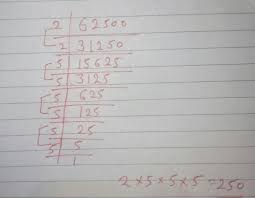 2 | 62500
2 | 31250
5 | 15625
5 | 3125
5 | 625
5 | 125
5 | 25
5 | 5
1
2 × 5 × 5 × 5 = 250